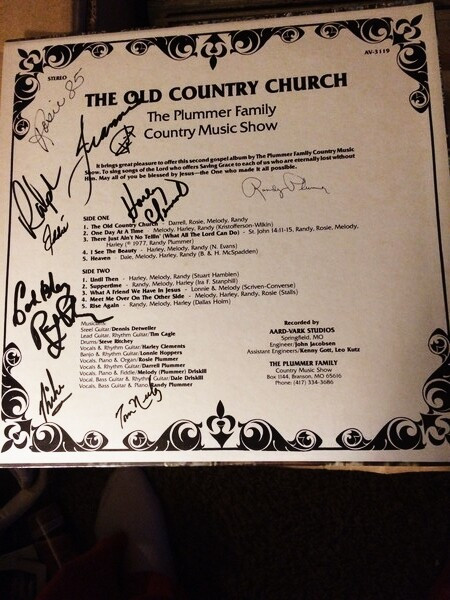 STEREO
AV-3119
THE OLD COUNTRY CHURCH
The Plummer Family
Country Music Show
It brings great pleasure to offer this second gospel album by The Plummer Family Country Music
Show. To sing songs of the Lord who offers Saving Grace to each of us who are eternally lost without
Him. May all of you be blessed by Jesus—the One who made it all possible.
Rosie 85
Ralph
SIDE ONE
1. The Old Country Church - Darrell, Rosie, Melody, Randy
2. One Day At A Time - Melody, Harley, Randy (Kristofferson-Wilkin)
3. There Just Ain't No Tellin' (What All The Lord Can Do) - St. John 14:11-15, Randy, Rosie, Melody,
Harley (© 1977, Randy Plummer)
4. I See The Beauty - Harley, Melody, Randy (N. Evans)
5. Heaven - Dale, Melody, Harley, Randy (B. & H. McSpadden)
SIDE TWO
1. Until Then - Harley, Melody, Randy (Stuart Hamblen)
2. Suppertime - Randy, Melody, Harley (Ira F. Stanphill)
3. What A Friend We Have In Jesus - Lonnie & Melody (Scriven-Converse)
4. Meet Me Over On The Other Side - Melody, Randy, Rosie (Stalls)
5. Rise Again - Randy, Melody, Harley (Dallas Holm)
Musicians:
Steel Guitar/Dennis Detweiler
Lead Guitar, Rhythm Guitar/Tim Cagle
Drums/Steve Ritchey
Vocals & Rhythm Guitar/Harley Clements
Banjo & Rhythm Guitar/Lonnie Hoppers
Vocals, Piano & Organ/Rosie Plummer
Vocals & Rhythm Guitar/Darrell Plummer
Vocals, Piano & Fiddle/Melody (Plummer) Driskill
Vocal, Bass Guitar & Rhythm Guitar/Dale Driskill
Vocals, Bass Guitar & Piano/Randy Plummer
Recorded by
AARD-VARK STUDIOS
Springfield, MO
Engineer/John Jacobsen
Assistant Engineers/Kenny Gott, Leo Kutz
THE PLUMMER FAMILY
Country Music Show
Box 1144, Branson, MO 65616
Phone: (417) 334-3686